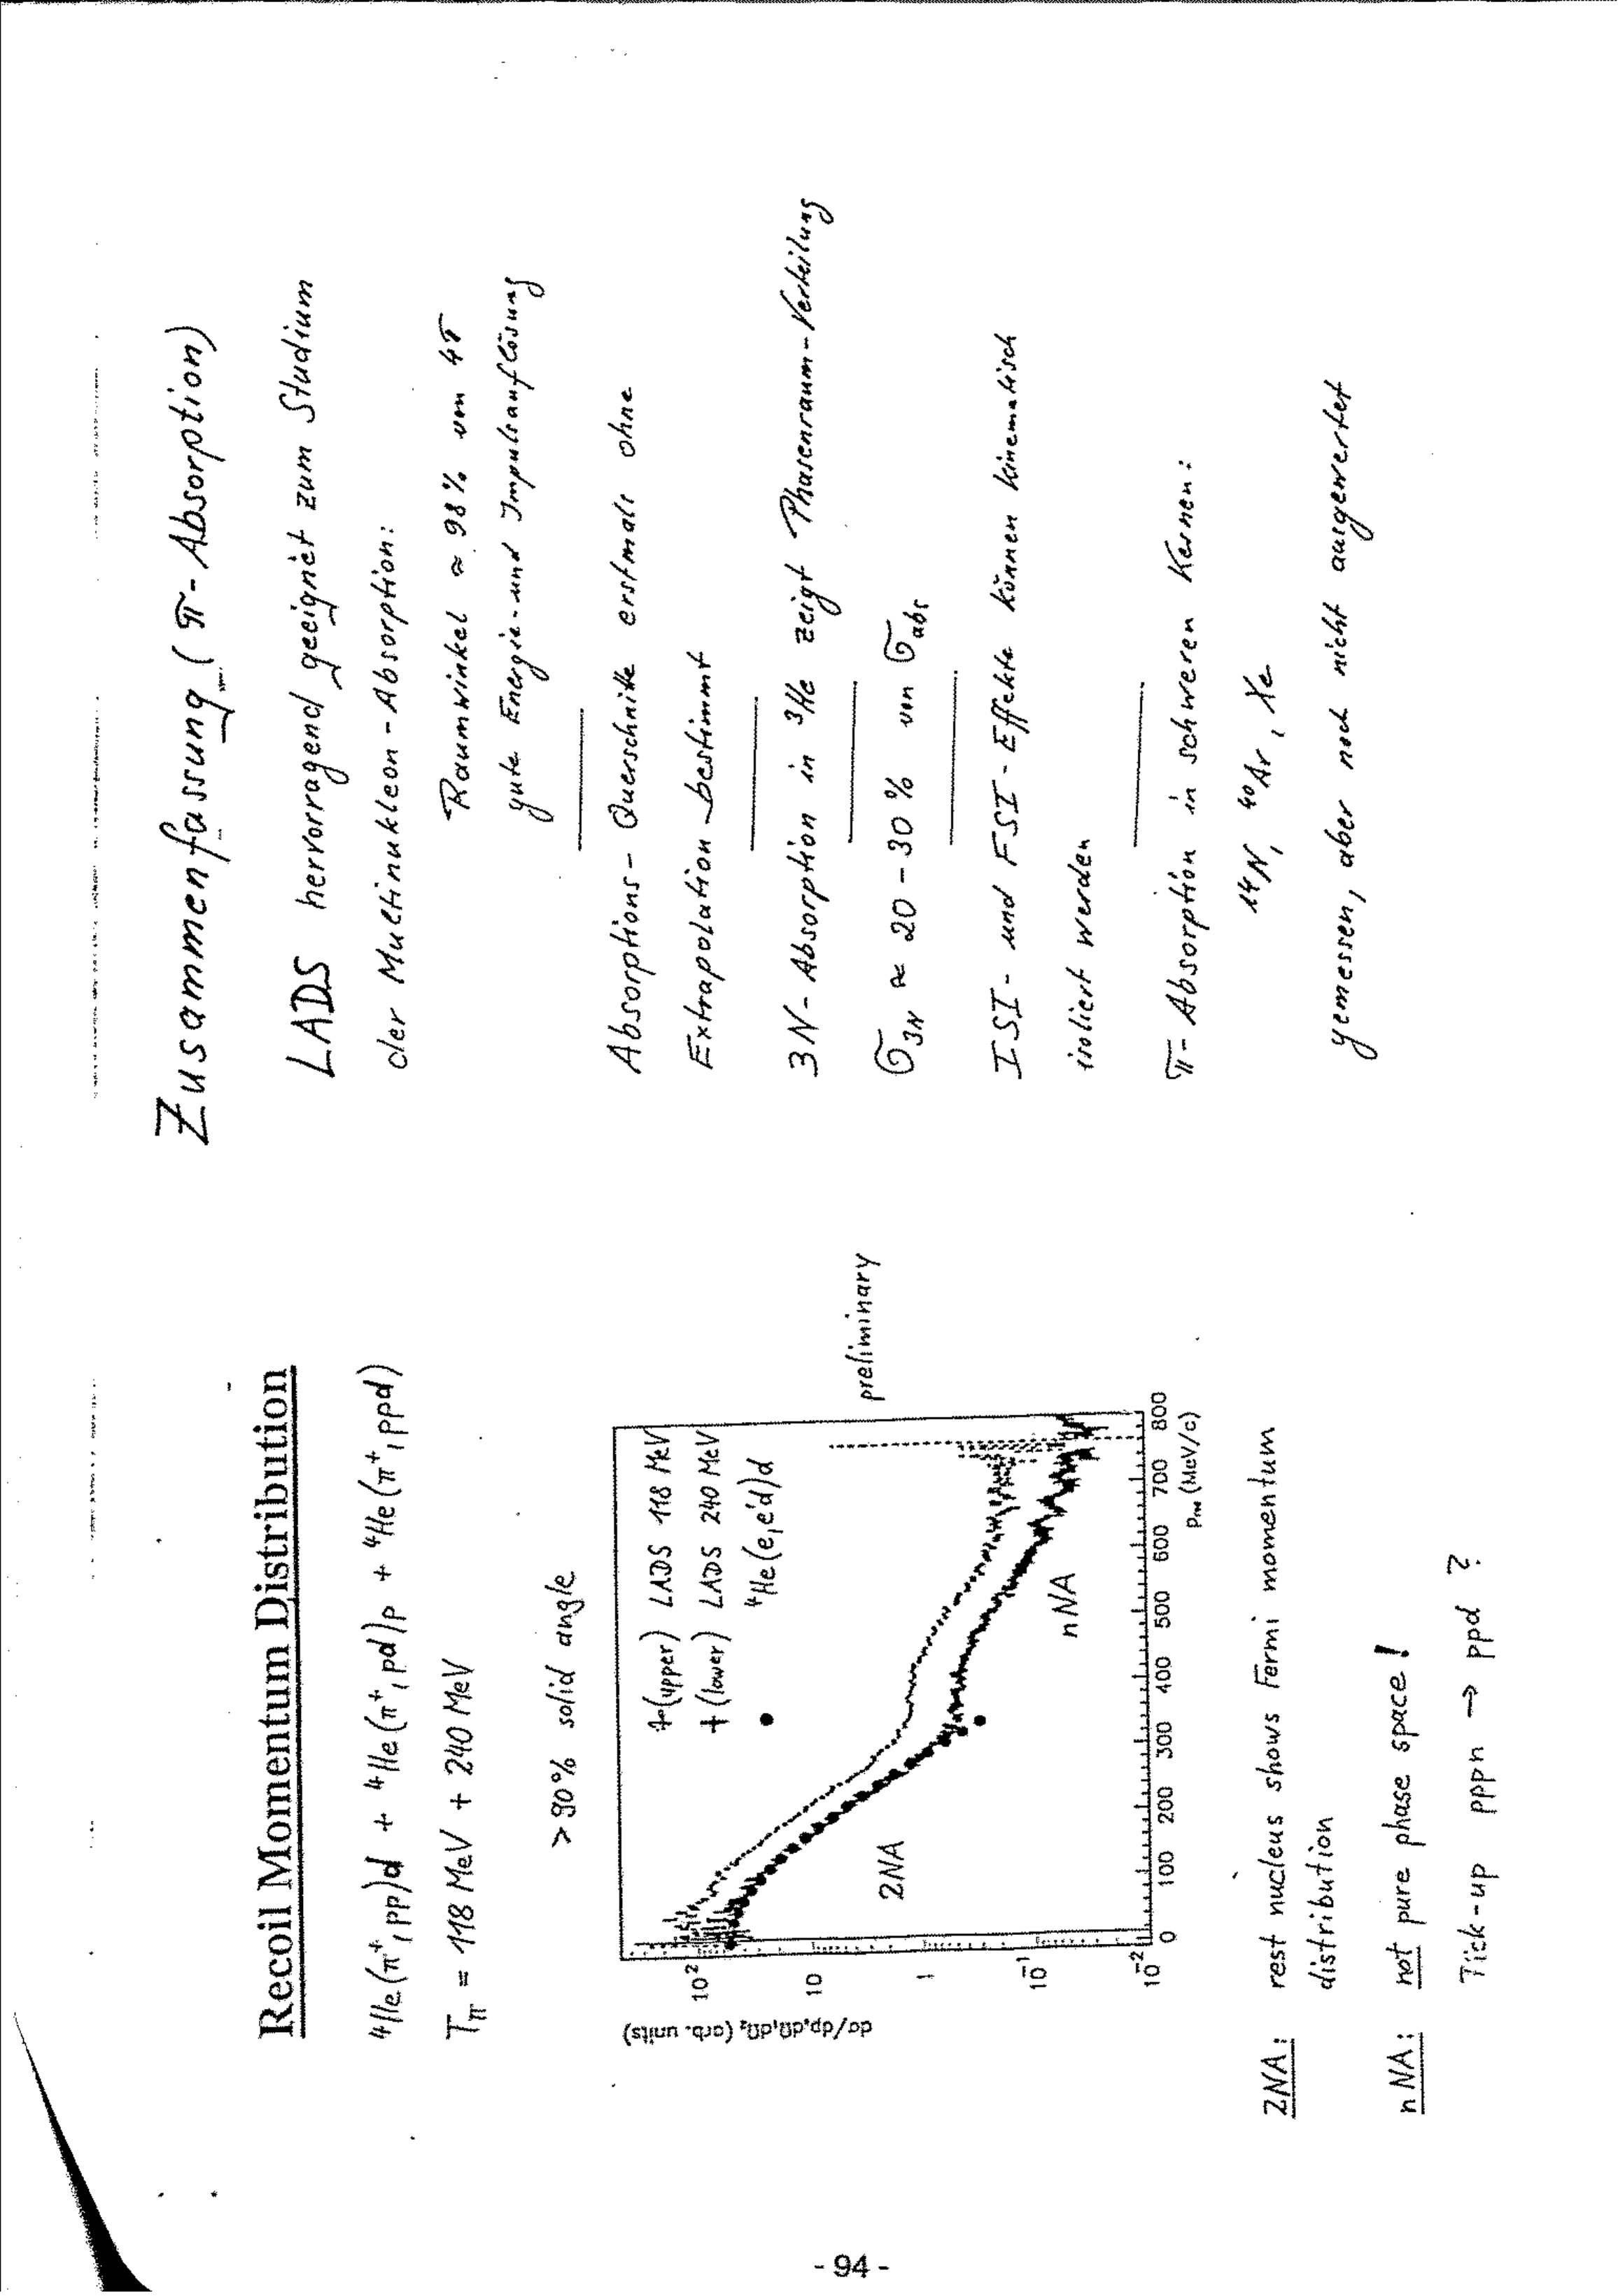 Recoil Momentum Distribution
⁴He(π⁺,pp)d + ⁴He(π⁺,pd)p + ⁴He(π⁺,ppd)
T_π = 118 MeV + 240 MeV
> 90% solid angle
+(upper) LADS 118 MeV
+(lower) LADS 240 MeV
● ⁴He(e,e'd)d
preliminary
2NA
nNA
dσ/dp₃dΩ₁dΩ₂ (arb. units)
10²
10
1
10⁻¹
10⁻²
0 100 200 300 400 500 600 700 800
(MeV/c)
2NA: rest nucleus shows Fermi momentum
distribution
nNA: not pure phase space!
Tick-up pppn → ppd ?
Zusammenfassung (π-Absorption)
LADS hervorragend geeignet zum Studium
der Multinukleon-Absorption:
Raumwinkel ≈ 98% von 4π
gute Energie- und Impulsauflösung
Absorptions-Querschnitte erstmals ohne
Extrapolation bestimmt
3N-Absorption in ³He zeigt Phasenraum-Verteilung
σ₃N ≈ 20-30% von σabs
ISI- und FSI-Effekte können kinematisch
isoliert werden
π-Absorption in schweren Kernen:
¹⁴N, ⁴⁰Ar, Xe
gemessen, aber noch nicht ausgewertet
- 94 -